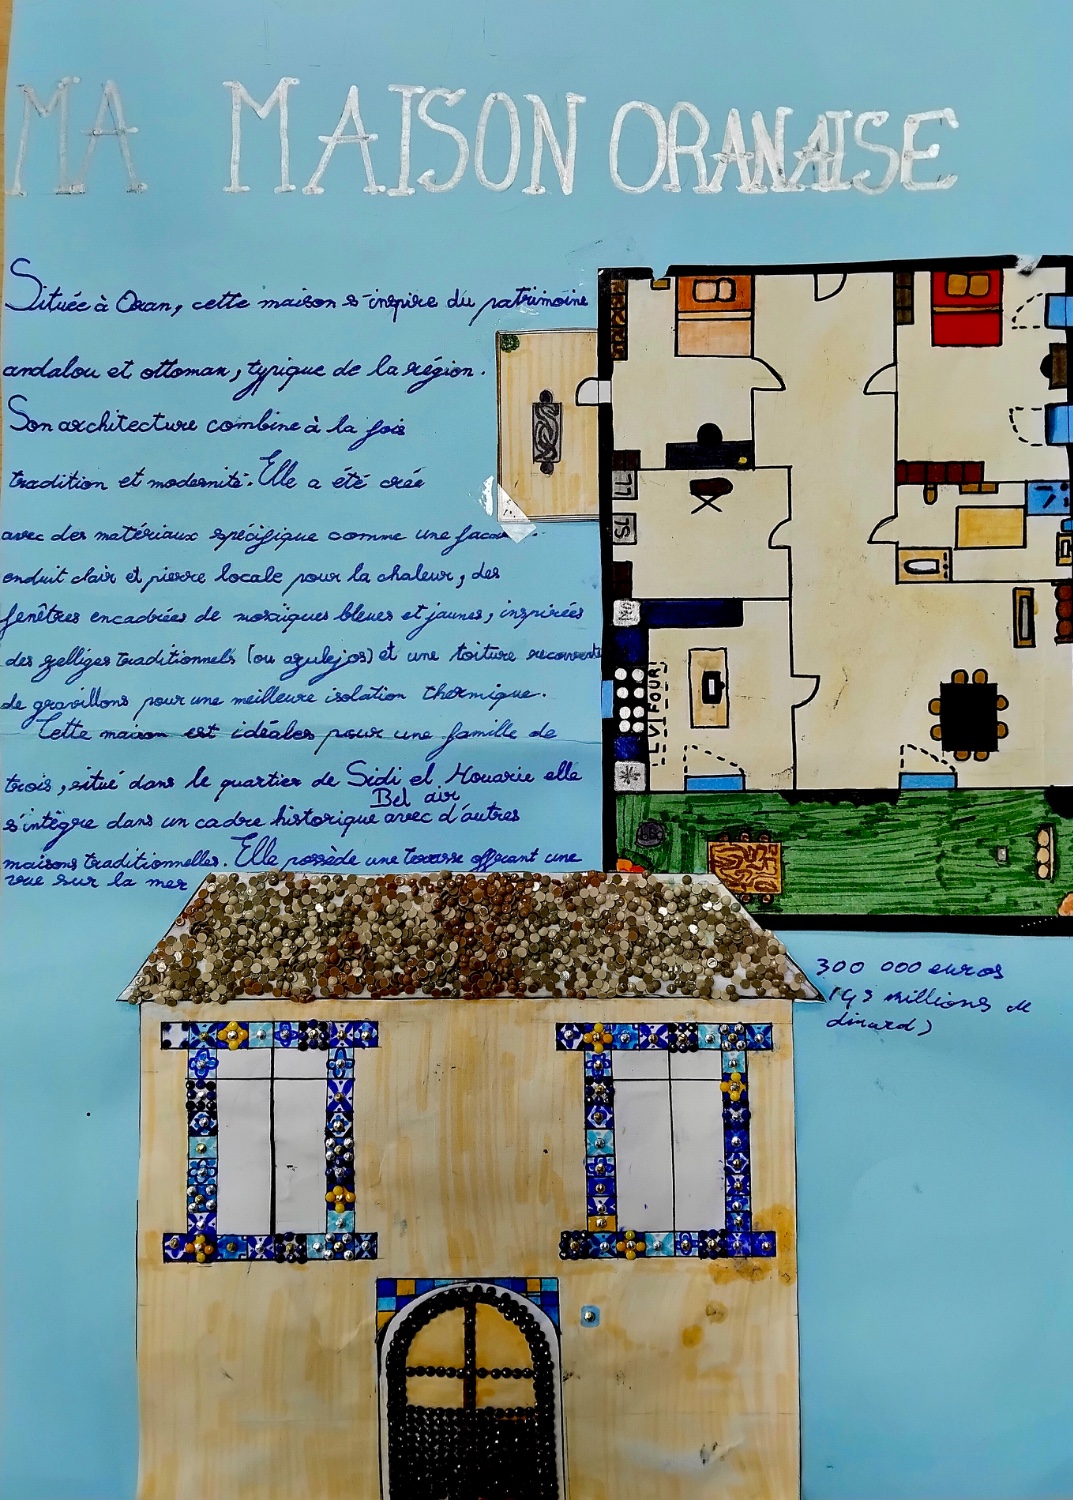 MA MAISON ORANAISE
Située à Oran, cette maison s'inspire du patrimoine
andalou et ottoman, typique de la région.
Son architecture combine à la fois
tradition et modernité. Elle a été créé
avec des matériaux spécifique comme une
enduit clair et pierre locale pour la chaleur, des
fenêtres encadrées de mosaïques bleues et jaunes, inspirées
des zelliges traditionnels (ou azulejos) et une toiture recouverte
de gravillons pour une meilleure isolation thermique.
Cette maison est idéales pour une famille de
trois, situé dans le quartier de Sidi el Houarie elle
Bel air
s'intègre dans un cadre historique avec d'autres
maisons traditionnelles. Elle possède une terrasse offrant une
vue sur la mer
LL
SL
LV
FOUR
300 000 euros
millions de
dinard)